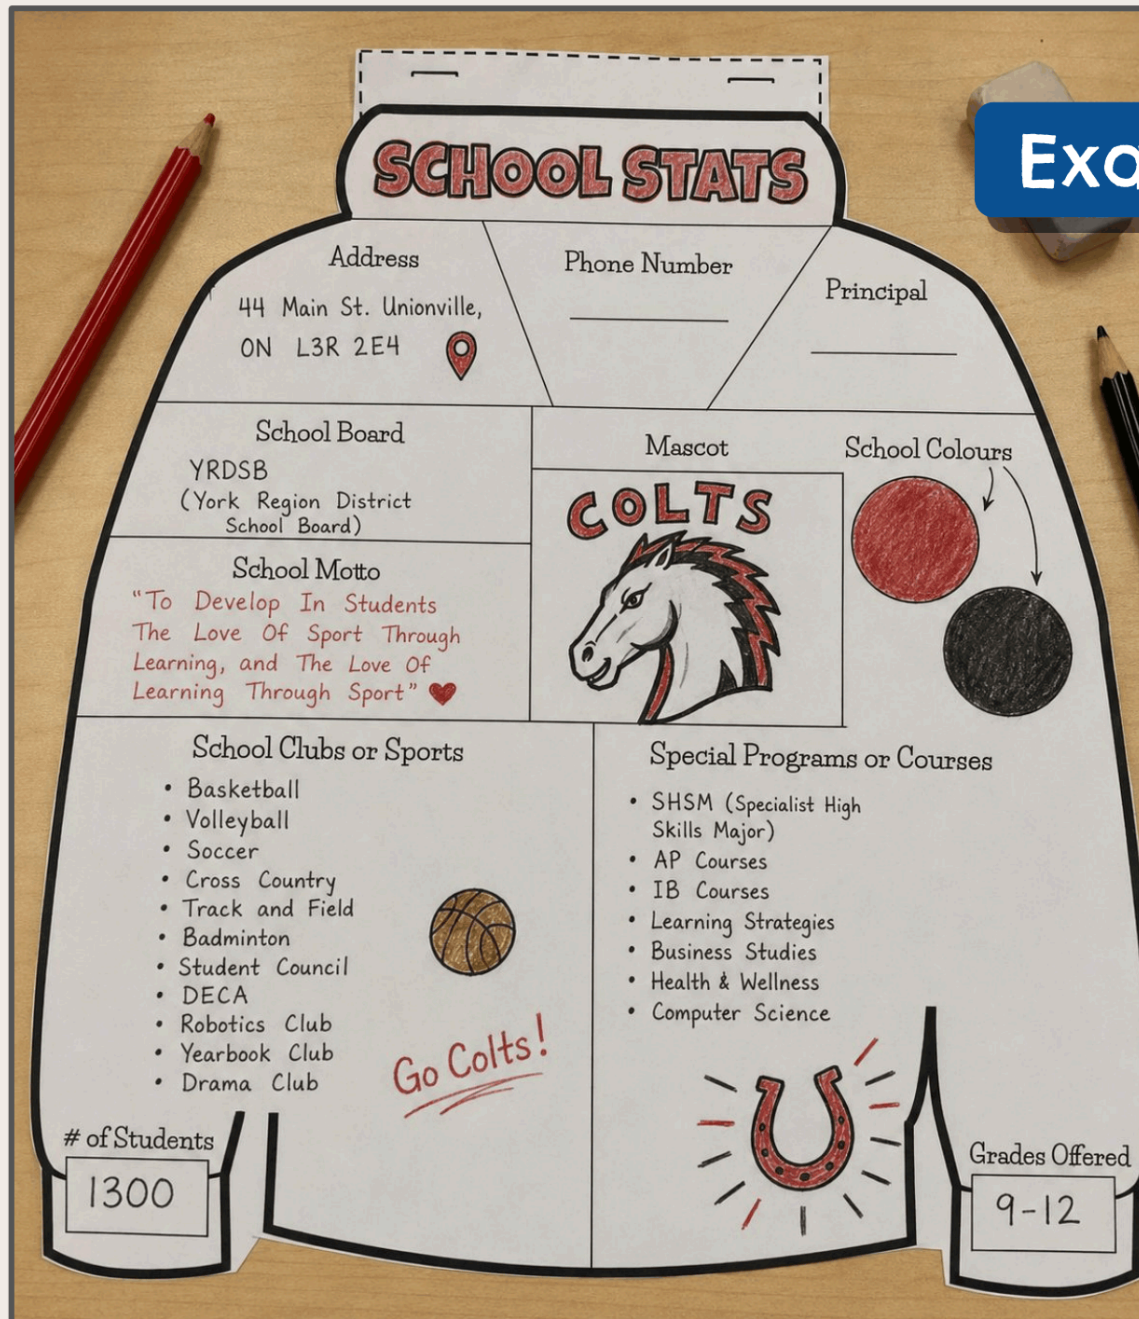 SCHOOL STATS
Address
44 Main St. Unionville,
ON L3R 2E4
Phone Number
Principal
School Board
YRDSB
(York Region District
School Board)
School Motto
"To Develop In Students
The Love Of Sport Through
Learning, and The Love Of
Learning Through Sport"
Mascot
COLTS
School Colours
School Clubs or Sports
• Basketball
• Volleyball
• Soccer
• Cross Country
• Track and Field
• Badminton
• Student Council
• DECA
• Robotics Club
• Yearbook Club
• Drama Club
Go Colts!
Special Programs or Courses
• SHSM (Specialist High
Skills Major)
• AP Courses
• IB Courses
• Learning Strategies
• Business Studies
• Health & Wellness
• Computer Science
# of Students
1300
Grades Offered
9-12